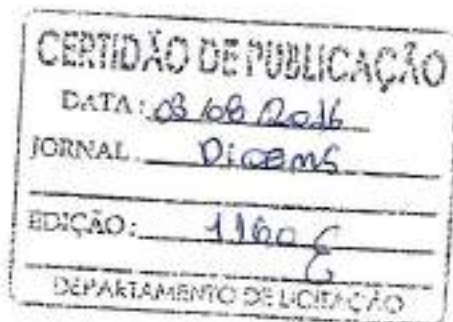 CERTIDÃO DE PUBLICAÇÃO
DATA: 03/08/2016
JORNAL DIOEMS
EDIÇÃO: 1160
DEPARTAMENTO DE LICITAÇÃO